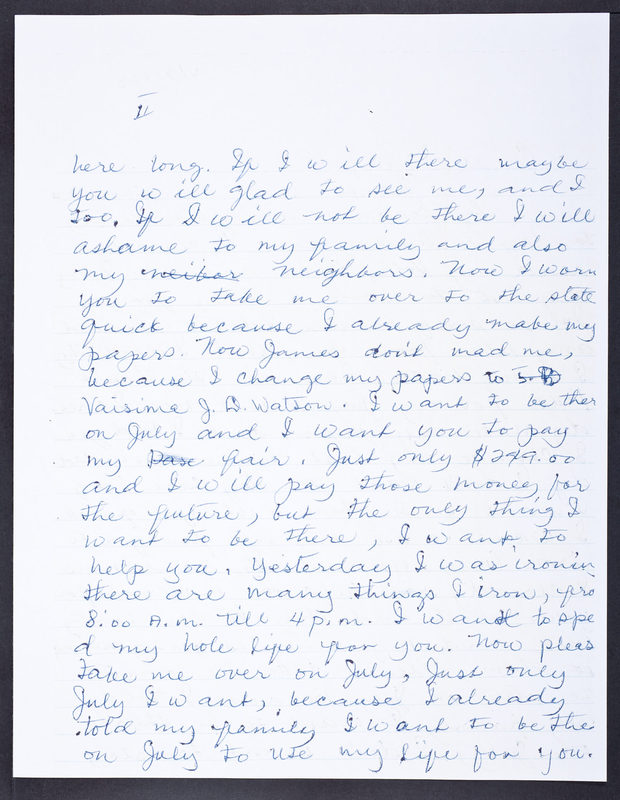 II
here long. If I will there maybe
you will glad to see me, and I
too. If I will not be there I will
ashame to my family and also
my neibor neighbors. Now I worn
you to take me over to the state
quick because I already make my
papers. Now James don't mad me,
because I change my papers to
Vaisima J. D. Watson. I want to be ther
on July and I want you to pay
my pase fair. Just only $249.00
and I will pay those money for
the future, but the only thing I
want to be there, I want to
help you. Yesterday I was ironin
there are many things I iron, fro
8:00 A.m. till 4 p.m. I want to spe
d my hole life for you. Now pleas
take me over on July, Just only
July I want, because I already
told my family I want to be the
on July to use my life for you.